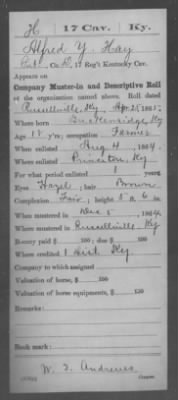 H 17 Cav. Ky.
Alfred Y. Hay
Co. D, 17 Reg't Kentucky Cav.
Appears on
Company Muster-in and Descriptive Roll
of the organization named above. Roll dated
Russellville, Ky, Apr. 25, 1865.
Where born Breckenridge, Ky
Age 18 y'rs; occupation Farmer
When enlisted Aug 4, 1864.
Where enlisted Princeton, Ky
For what period enlisted 1 years
Eyes Hazel; hair Brown
Complexion Fair; height 5 ft. 6 in.
When mustered in Dec 5, 1864.
Where mustered in Russellville, Ky
Bounty paid $ 100; due $ 100
Where credited 1 Dist. Ky
Company to which assigned
Valuation of horse, $ 100
Valuation of horse equipments, $ 100
Remarks:
Book mark:
W. T. Andrews
Copyist.